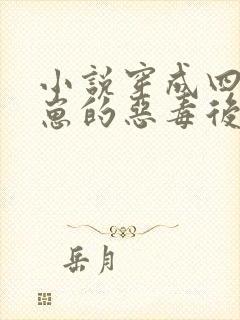 小說穿成四
崽的惡毒後
岳月